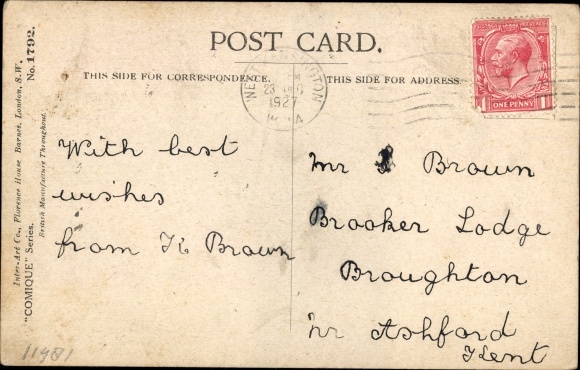 POST CARD.
THIS SIDE FOR CORRESPONDENCE.
THIS SIDE FOR ADDRESS.
1927
ONE PENNY
With best
wishes
from K Brown
Mr Brown
Brooker Lodge
Broughton
nr Ashford
Kent
Inter-Art Co., Florence House Barnes, London, S.W.
"COMIQUE" Series.
No. 1792.
British Manufacture Throughout.
11981